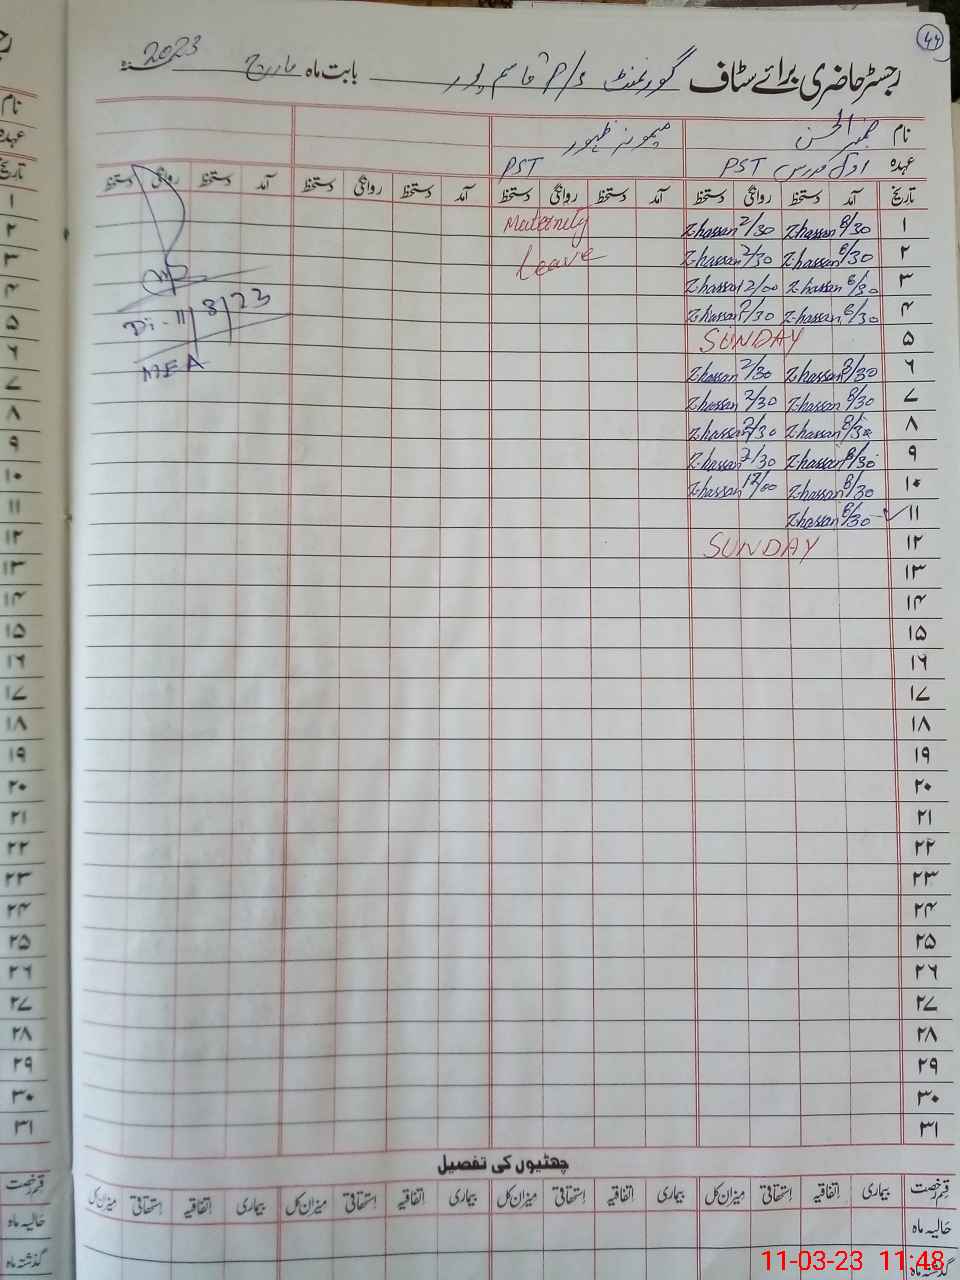 ۴۴
رجسٹر حاضری برائے سٹاف گورنمنٹ P/S قاسم پور بابت ماہ مارچ 2023
نام ضمیر الحسن میمونہ ظہور
عہدہ PST PST
تاریخ آمد دستخط روانگی دستخط آمد دستخط روانگی دستخط آمد دستخط روانگی دستخط آمد دستخط روانگی دستخط
۱ 8/30 Z.hassan 2/30 Z.hassan Maternity
۲ 8/30 Z.hassan 2/30 Z.hassan Leave
۳ 8/30 Z.hassan 12/00 Z.hassan
۴ 8/30 Z.hassan 2/30 Z.hassan
۵ SUNDAY
۶ 8/30 Z.hassan 2/30 Z.hassan
۷ 8/30 Z.hassan 2/30 Z.hassan
۸ 8/30 Z.hassan 2/30 Z.hassan
۹ 8/30 Z.hassan 2/30 Z.hassan
۱۰ 8/30 Z.hassan 12/00 Z.hassan
۱۱ 8/30 Z.hassan
۱۲ SUNDAY
۱۳
۱۴
۱۵
۱۶
۱۷
۱۸
۱۹
۲۰
۲۱
۲۲
۲۳
۲۴
۲۵
۲۶
۲۷
۲۸
۲۹
۳۰
۳۱
11/3/23
MEA
چھٹیوں کی تفصیل
قسم رخصت بیماری اتفاقیہ استحقاقی میزان کل بیماری اتفاقیہ استحقاقی میزان کل بیماری اتفاقیہ استحقاقی میزان کل بیماری اتفاقیہ استحقاقی میزان کل
حالیہ ماہ
گذشتہ ماہ
نام
عہدہ
تاریخ
۱
۲
۳
۴
۵
۶
۷
۸
۹
۱۰
۱۱
۱۲
۱۳
۱۴
۱۵
۱۶
۱۷
۱۸
۱۹
۲۰
۲۱
۲۲
۲۳
۲۴
۲۵
۲۶
۲۷
۲۸
۲۹
۳۰
۳۱
قسم رخصت
حالیہ ماہ
گذشتہ ماہ
11-03-23 11:48